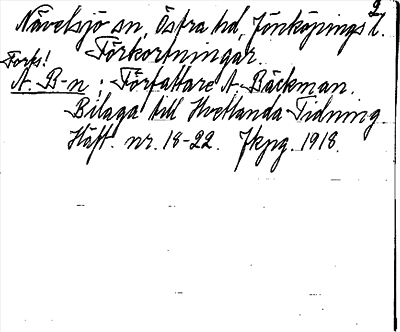 2
Nävelsjö sn, Östra hd, Jönköpings l.
Förkortningar.
Forts!
A. B-n : Författare A. Bäckman.
Bilaga till Hvetlanda Tidning
Häft. nr. 18-22. Jkpg. 1918.